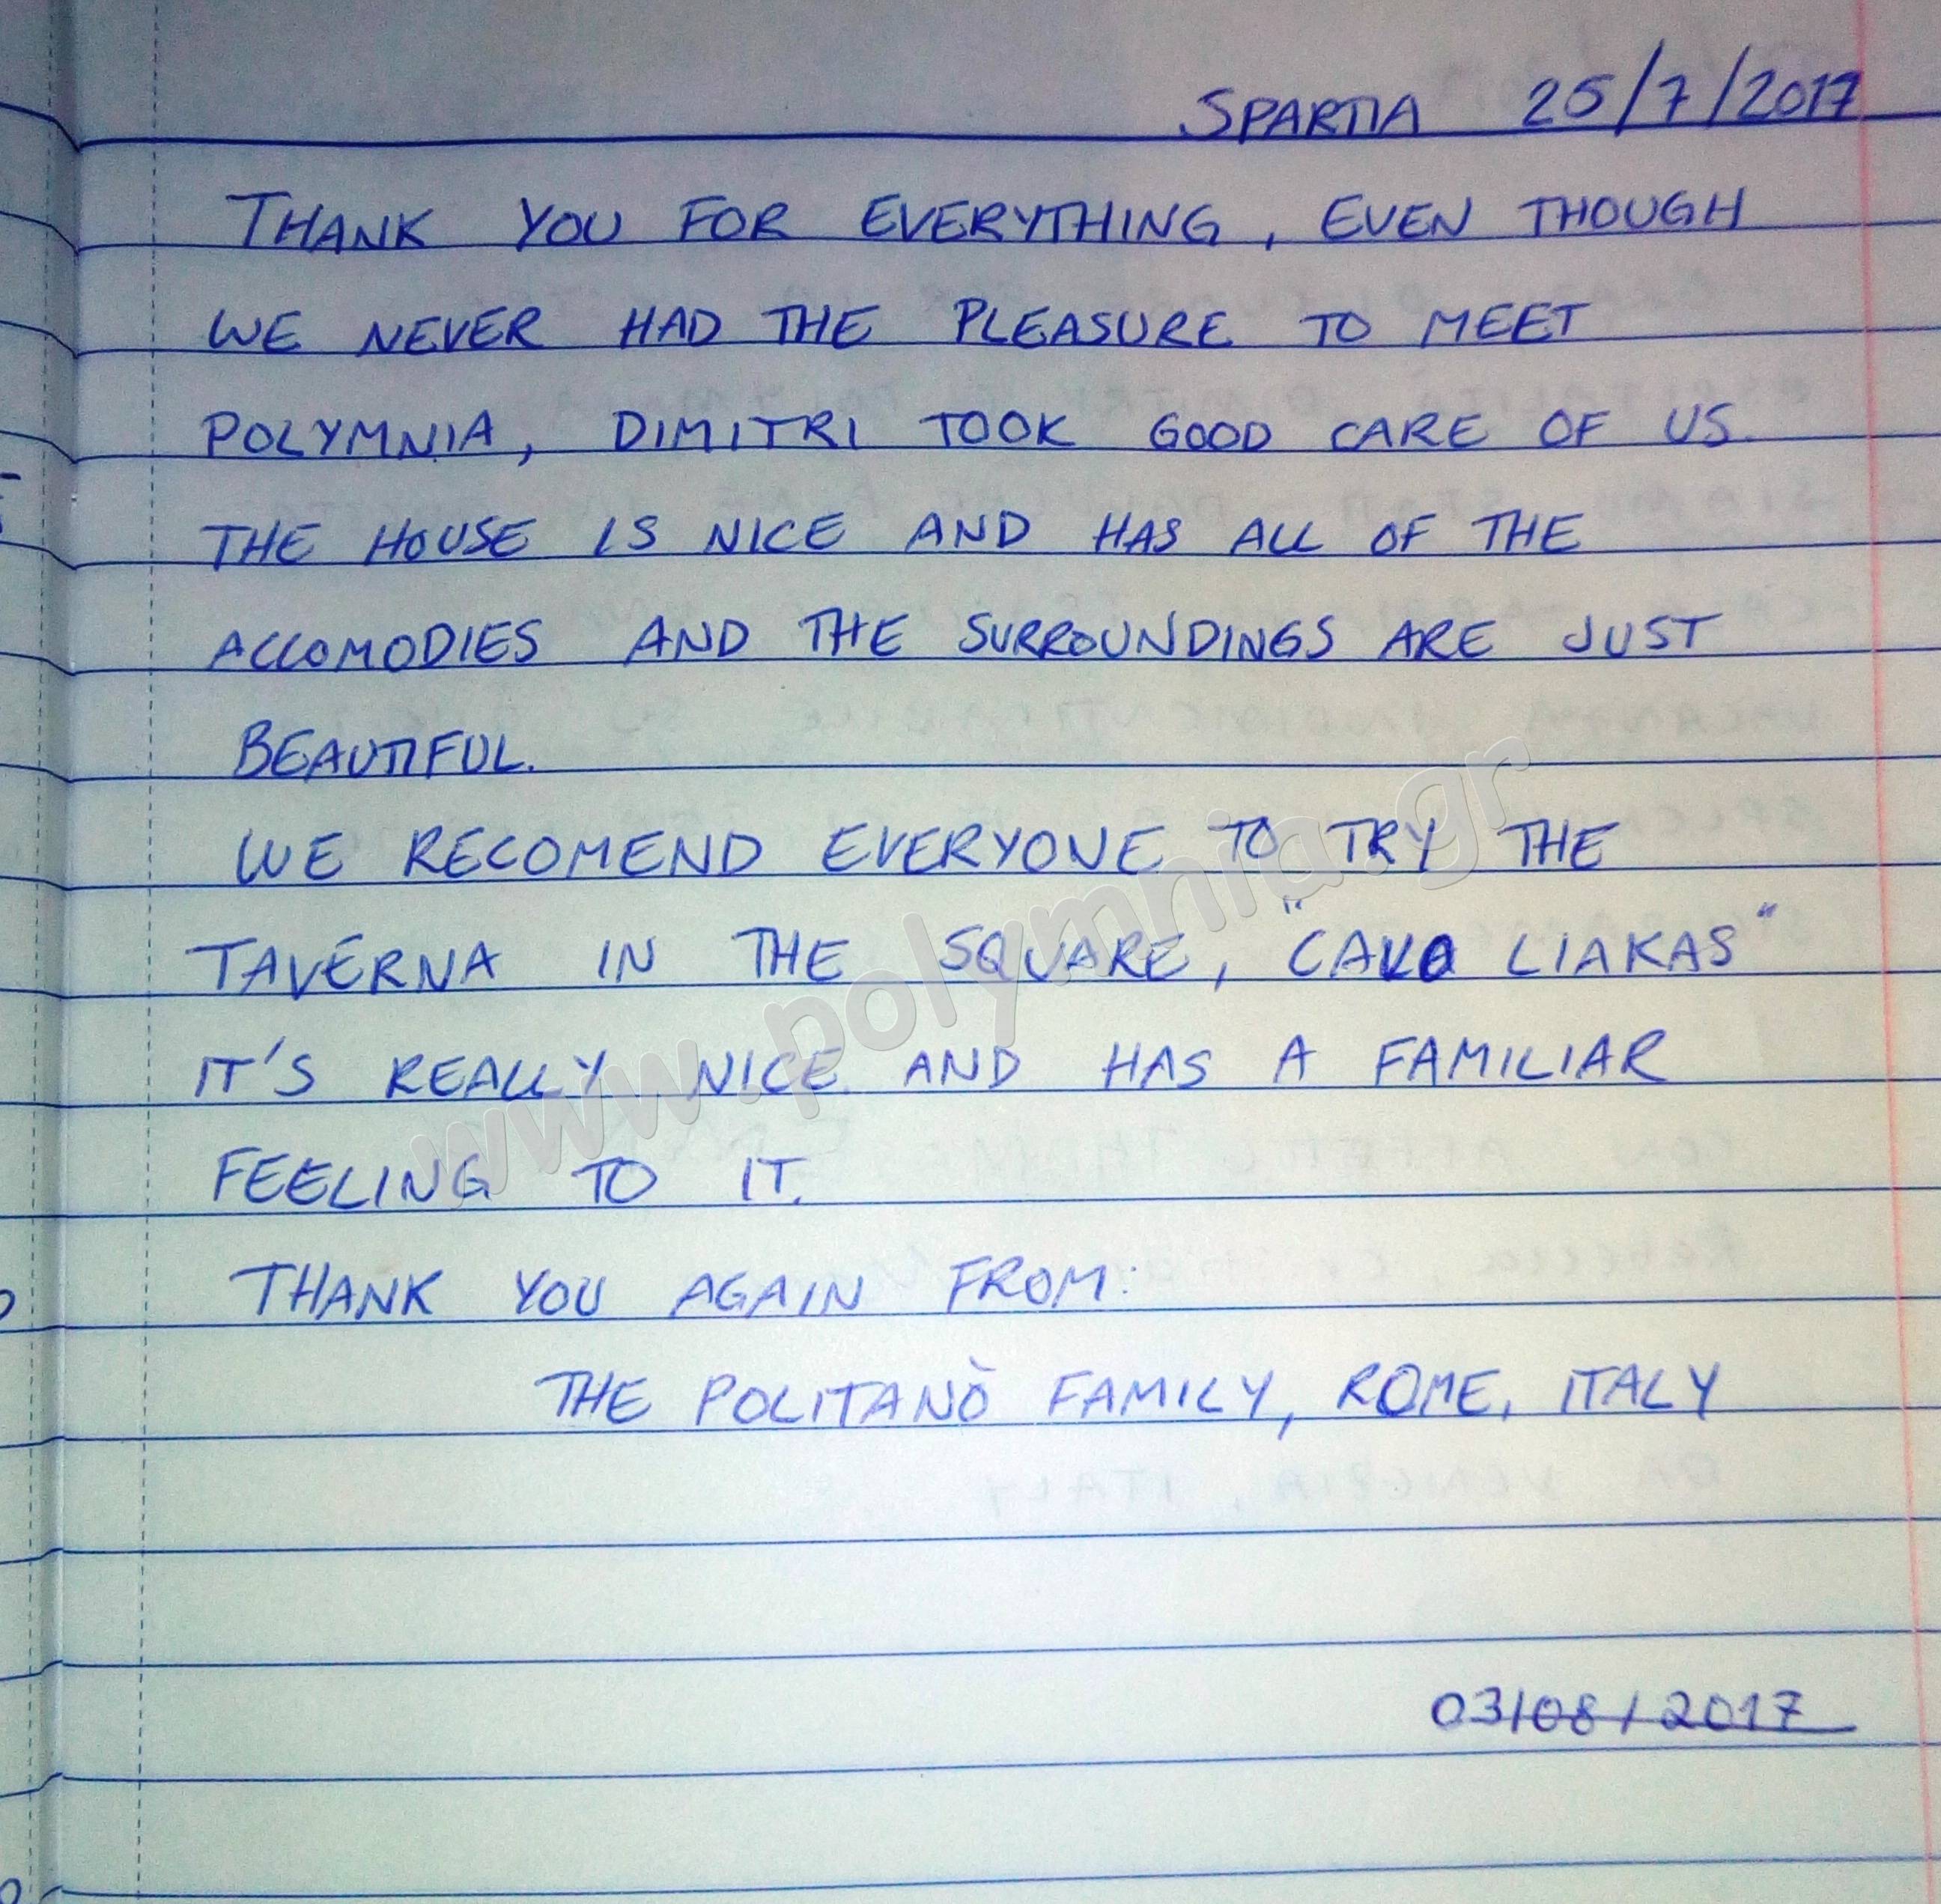 SPARTIA 25/7/2017
THANK YOU FOR EVERYTHING, EVEN THOUGH
WE NEVER HAD THE PLEASURE TO MEET
POLYMNIA, DIMITRI TOOK GOOD CARE OF US.
THE HOUSE IS NICE AND HAS ALL OF THE
ACCOMODIES AND THE SURROUNDINGS ARE JUST
BEAUTIFUL.
WE RECOMEND EVERYONE TO TRY THE
TAVERNA IN THE SQUARE, "CAVO LIAKAS"
IT'S REALLY NICE AND HAS A FAMILIAR
FEELING TO IT.
THANK YOU AGAIN FROM:
THE POLITANÒ FAMILY, ROME, ITALY
03/08/2017
www.polymnia.gr